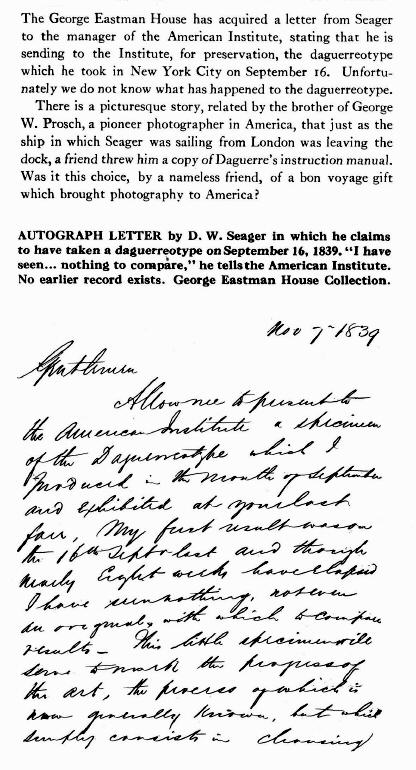 The George Eastman House has acquired a letter from Seager
to the manager of the American Institute, stating that he is
sending to the Institute, for preservation, the daguerreotype
which he took in New York City on September 16. Unfortu-
nately we do not know what has happened to the daguerreotype.
There is a picturesque story, related by the brother of George
W. Prosch, a pioneer photographer in America, that just as the
ship in which Seager was sailing from London was leaving the
dock, a friend threw him a copy of Daguerre's instruction manual.
Was it this choice, by a nameless friend, of a bon voyage gift
which brought photography to America?
AUTOGRAPH LETTER by D. W. Seager in which he claims
to have taken a daguerreotype on September 16, 1839. "I have
seen... nothing to compare," he tells the American Institute.
No earlier record exists. George Eastman House Collection.
Nov 7 - 1839
Gentlemen
Allow me to present to
the American Institute a specimen
of the Daguerreotype which I
produced in the month of September
and exhibited at your last
fair, My first result was on
the 16th Sept. last and though
nearly Eight weeks have elapsed
I have seen nothing, not even
an original, with which to compare
results - This little specimen will
serve to mark the progress of
the art, the process of which is
now generally known, but which
simply consists in choosing